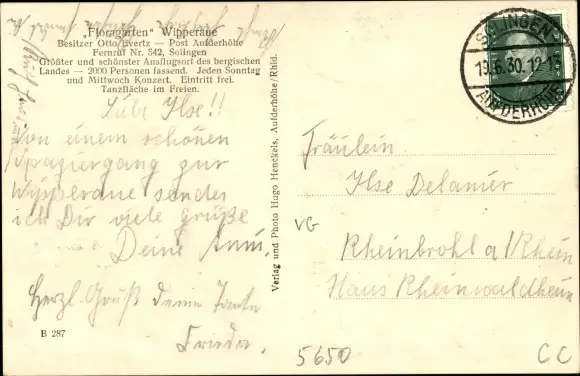 „Floragarten“ Wipperaue
Besitzer Otto Evertz — Post Aufderhöhe
Fernruf Nr. 542, Solingen
Größter und schönster Ausflugsort des bergischen
Landes — 2000 Personen fassend. Jeden Sonntag
und Mittwoch Konzert. Eintritt frei.
Tanzfläche im Freien.
Liebe Ilse!!
Von einem schönen
Spaziergang zur
Wipperaue sendet
ich Dir viele Grüße
Deine Anni.
Herzl. Gruß deine Tante
Frieda.
B 287
Verlag und Photo Hugo Henckels, Aufderhöhe/Rhld.
SOLINGEN
19.6.30.12-13
AUFDERHÖHE
Fräulein
Ilse Delanier
VG
Rheinbrohl a/Rhein
Haus Rheinwaldheim
5650
CC